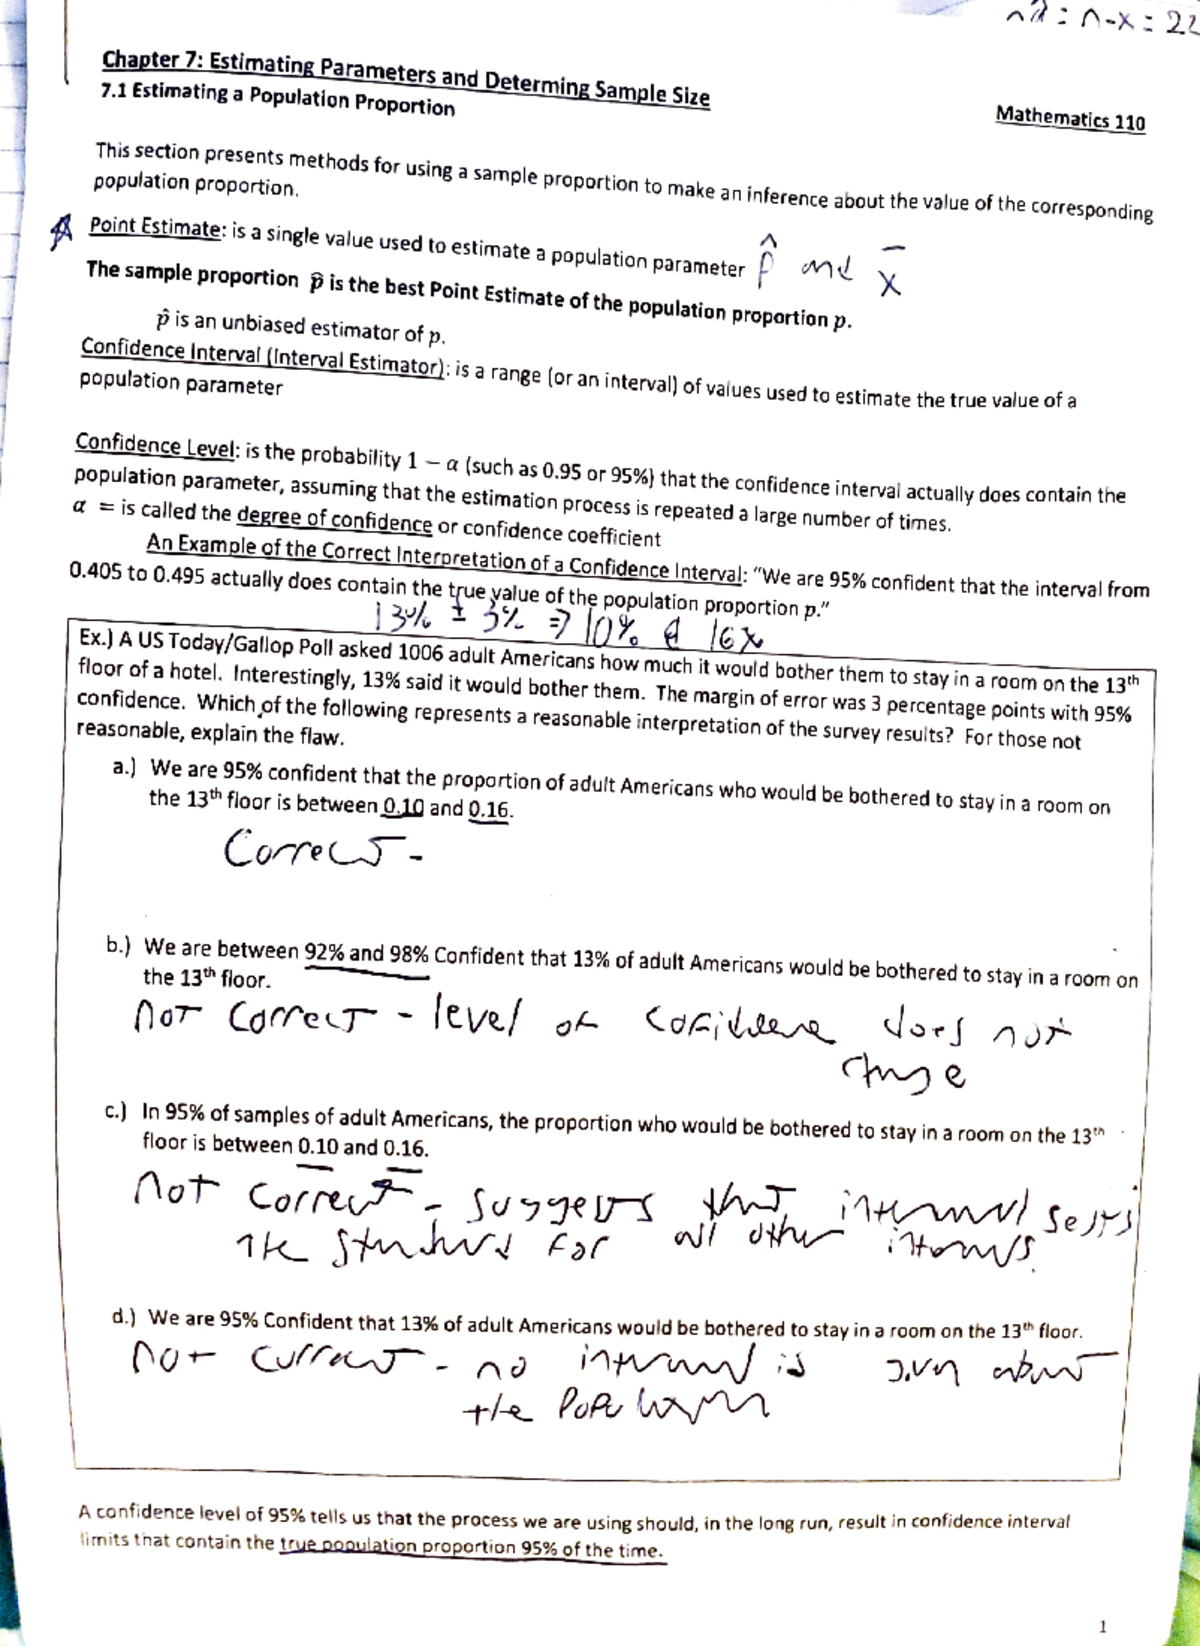 n-x = 22
Chapter 7: Estimating Parameters and Determing Sample Size
7.1 Estimating a Population Proportion
Mathematics 110
This section presents methods for using a sample proportion to make an inference about the value of the corresponding
population proportion.
Point Estimate: is a single value used to estimate a population parameter p̂ and x̄
The sample proportion p̂ is the best Point Estimate of the population proportion p.
p̂ is an unbiased estimator of p.
Confidence Interval (Interval Estimator): is a range (or an interval) of values used to estimate the true value of a
population parameter
Confidence Level: is the probability 1 – α (such as 0.95 or 95%) that the confidence interval actually does contain the
population parameter, assuming that the estimation process is repeated a large number of times.
α = is called the degree of confidence or confidence coefficient
An Example of the Correct Interpretation of a Confidence Interval: "We are 95% confident that the interval from
0.405 to 0.495 actually does contain the true value of the population proportion p."
13% ± 3% ⇒ 10% 16%
Ex.) A US Today/Gallop Poll asked 1006 adult Americans how much it would bother them to stay in a room on the 13th
floor of a hotel. Interestingly, 13% said it would bother them. The margin of error was 3 percentage points with 95%
confidence. Which of the following represents a reasonable interpretation of the survey results? For those not
reasonable, explain the flaw.
a.) We are 95% confident that the proportion of adult Americans who would be bothered to stay in a room on
the 13th floor is between 0.10 and 0.16.
Correct -
b.) We are between 92% and 98% Confident that 13% of adult Americans would be bothered to stay in a room on
the 13th floor.
not correct - level of does not
c.) In 95% of samples of adult Americans, the proportion who would be bothered to stay in a room on the 13th
floor is between 0.10 and 0.16.
not correct - suggests that interval
the standard for all other
d.) We are 95% Confident that 13% of adult Americans would be bothered to stay in a room on the 13th floor.
not correct - no interval is given about
the population
A confidence level of 95% tells us that the process we are using should, in the long run, result in confidence interval
limits that contain the true population proportion 95% of the time.
1